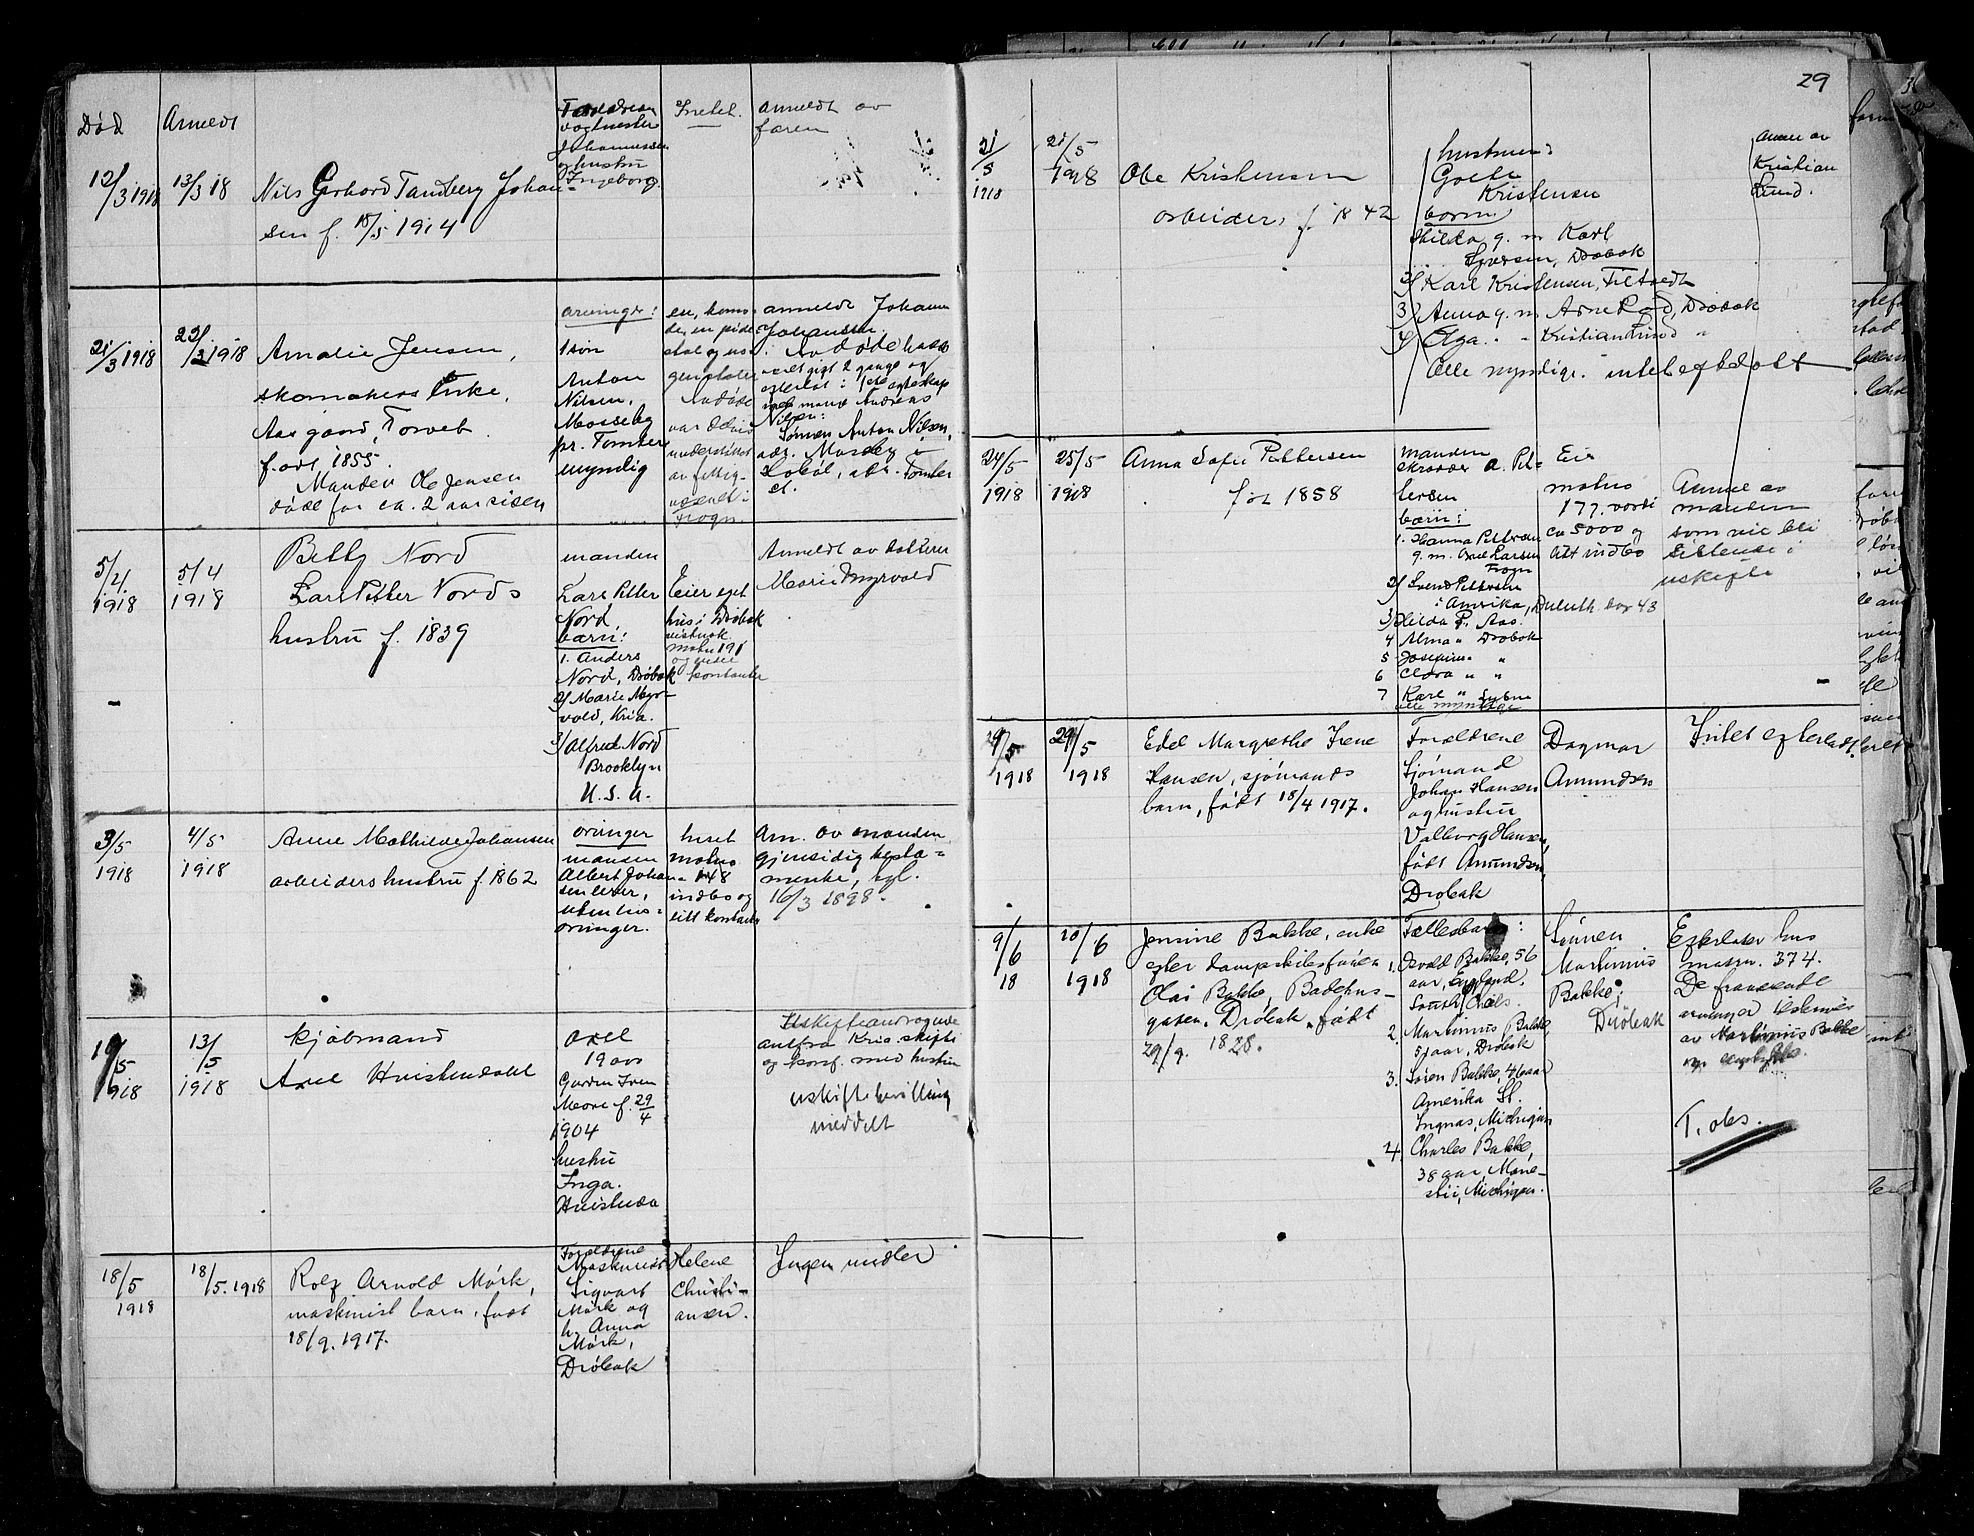 29
Død
Anmeldt
12/3 1918
13/3 18
Nils Gerhard Tandberg Johan-
sen f. 18/5 1914
Forældrene
vogtmester
Johannessen
og hustru
Ingeborg.
Intet.
anmeldt av
faren
21/3 1918
22/3 1918
Amalie Jensen,
skomakers Enke,
Aasgaard, Torvet.
født 1855.
Manden Ole Jensen
døde for ca. 2 aar siden
arvinger:
1 søn
Anton
Nilsen,
Mosseby
pr. Tomter
myndig
en, komo-
de, en pide
stal og
Avdøde
var
understøttet
av fattig-
væsenet i
Frogn.
anmeldt Johann
Johansen.
Avdøde hadde
været gift 2 gange og
efterlot i 1ste egteskap
med mand Andreas
Nilsen:
Sønnen Anton Nilsen,
adr. Mosseby i
Hobøl, adr. Tomter
st.
5/4 1918
5/4 1918
Betty Nord
Lars Petter Nords
hustru f. 1839
manden
Lars Petter
Nord,
bærn:
1. Anders
Nord, Drøbak
2/ Marie Myr-
vold, Kria.
3/ Alfred Nord
Brooklyn
U. S. A.
Eier eget
hus i Drøbak
matrno 191
kontanter
Anmeldt av datteren
Marie Myrvold
3/5 1918
4/5 1918
Anne Mathilde Johansen
arbeiders hustru f. 1862
arvinger
manden
Albert Johan-
sen lever,
uten livs-
arvinger.
huset
matrno
148
indbo og
litt kontanter
Anm. av manden
gjensidig testa-
mente, tgl.
16/3 1898.
10/5 1918
13/5 1918
Kjøbmand
Axel Hvistendahl
Axel
19 aar
Gudrun Iren
Merve f. 29/4
1904
hustru
Inga
Hvistenda
Uskifteandragende
antfra Kria. skifte
og konf. med hustru
uskiftebevilling
meddelt
18/5 1918
18/5. 1918
Rolf Arnold Mörk,
maskinist barn, født
18/9. 1917.
Forældrene
Maskinist
Sigvart
Mörk og
h. Anna
Mörk,
Drøbak
Helene
Christi-
ansen.
Ingen midler
21/5 1918
21/5 1918
Ole Kristensen
arbeider, f. 1842
hustruen:
Goete
Kristensen
børn
Hilda g. m. Karl
Syversen, Drøbak
2/ Karl Kristensen, Filtvedt
3/ Anna g. m. Arne Rød, Drøbak
4/ Olga " " Kristian Lund "
Alle myndige. intet efterlatt
Anm av
Kristian
Lund.
24/5 1918
25/5 1918
Anna Sofie Pettersen
født 1858
manden
skrædder A. Pet-
tersen
børn:
1. Hanna Pettersen
g. m. Axel Larsen
Frogn
2/ Svend Pettersen
i Amerika, Duluth box 43
3/ Hilda P. Aas.
4 Alma " Drøbak
5 Josefine "
6 Clara " "
7 Karl "
alle myndige
Eier
matrno
177. værdi
ca 5000 og
alt indbo
Anm av
manden
som vil bli
sittende i
uskifte
29/5 1918
29/5 1918
Edel Margrethe Irene
Hansen, sjømands
barn, født 18/4 1917.
Forældrene
Sjömand
Johan Hansen
og hustru
Valborg Hansen,
født Amundsen,
Drøbak
Dagmar
Amundsen
Intet efterlatt
9/6 18
10/6 1918
Jensine Bakke, enke
efter dampskibsfører
Olai Bakke, Badehus-
gaten, Drøbak, født
29/9. 1828.
Fællesbarn:
1. Osvald Bakke, 56
aar, England,
South
2. Martinius Bakke,
51 aar, Drøbak
3. Sören Bakke, 46 aar
Amerika St.
Ingnas, Michigan
4. Charles Bakke,
38 aar Mane-
stii, Michigan.
Sønnen
Martinius
Bakke,
Drøbak
Efterlater hus
matrn. 374.
De fraværende
arvinger
av Martinius Bakke
T. obs.